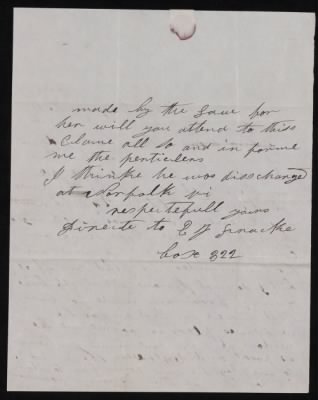 made by the Saw for
her will you attend to this
Clame all so and in forme
me the perticlers
I thinke he was disschanged
at Norfolk vi
respectefull yours
Directe to E J
box 322